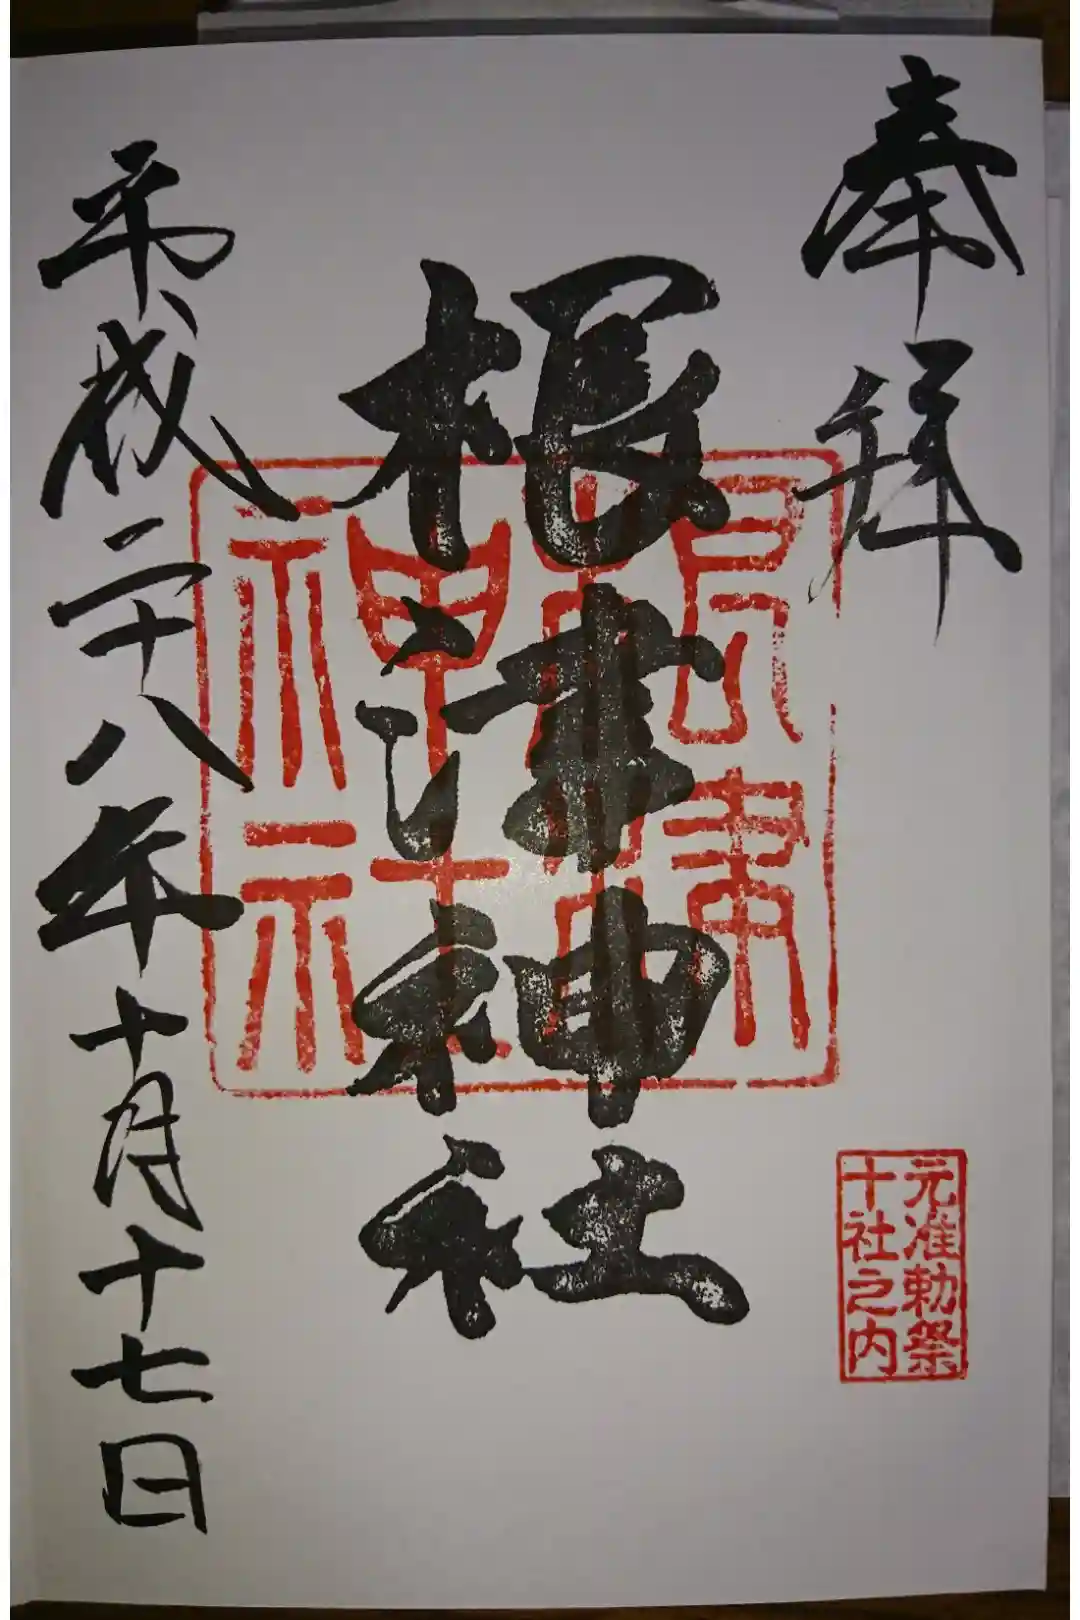 奉拝
元准勅祭
十社之内
根津神社
根津神社
平成二十八年十月十七日